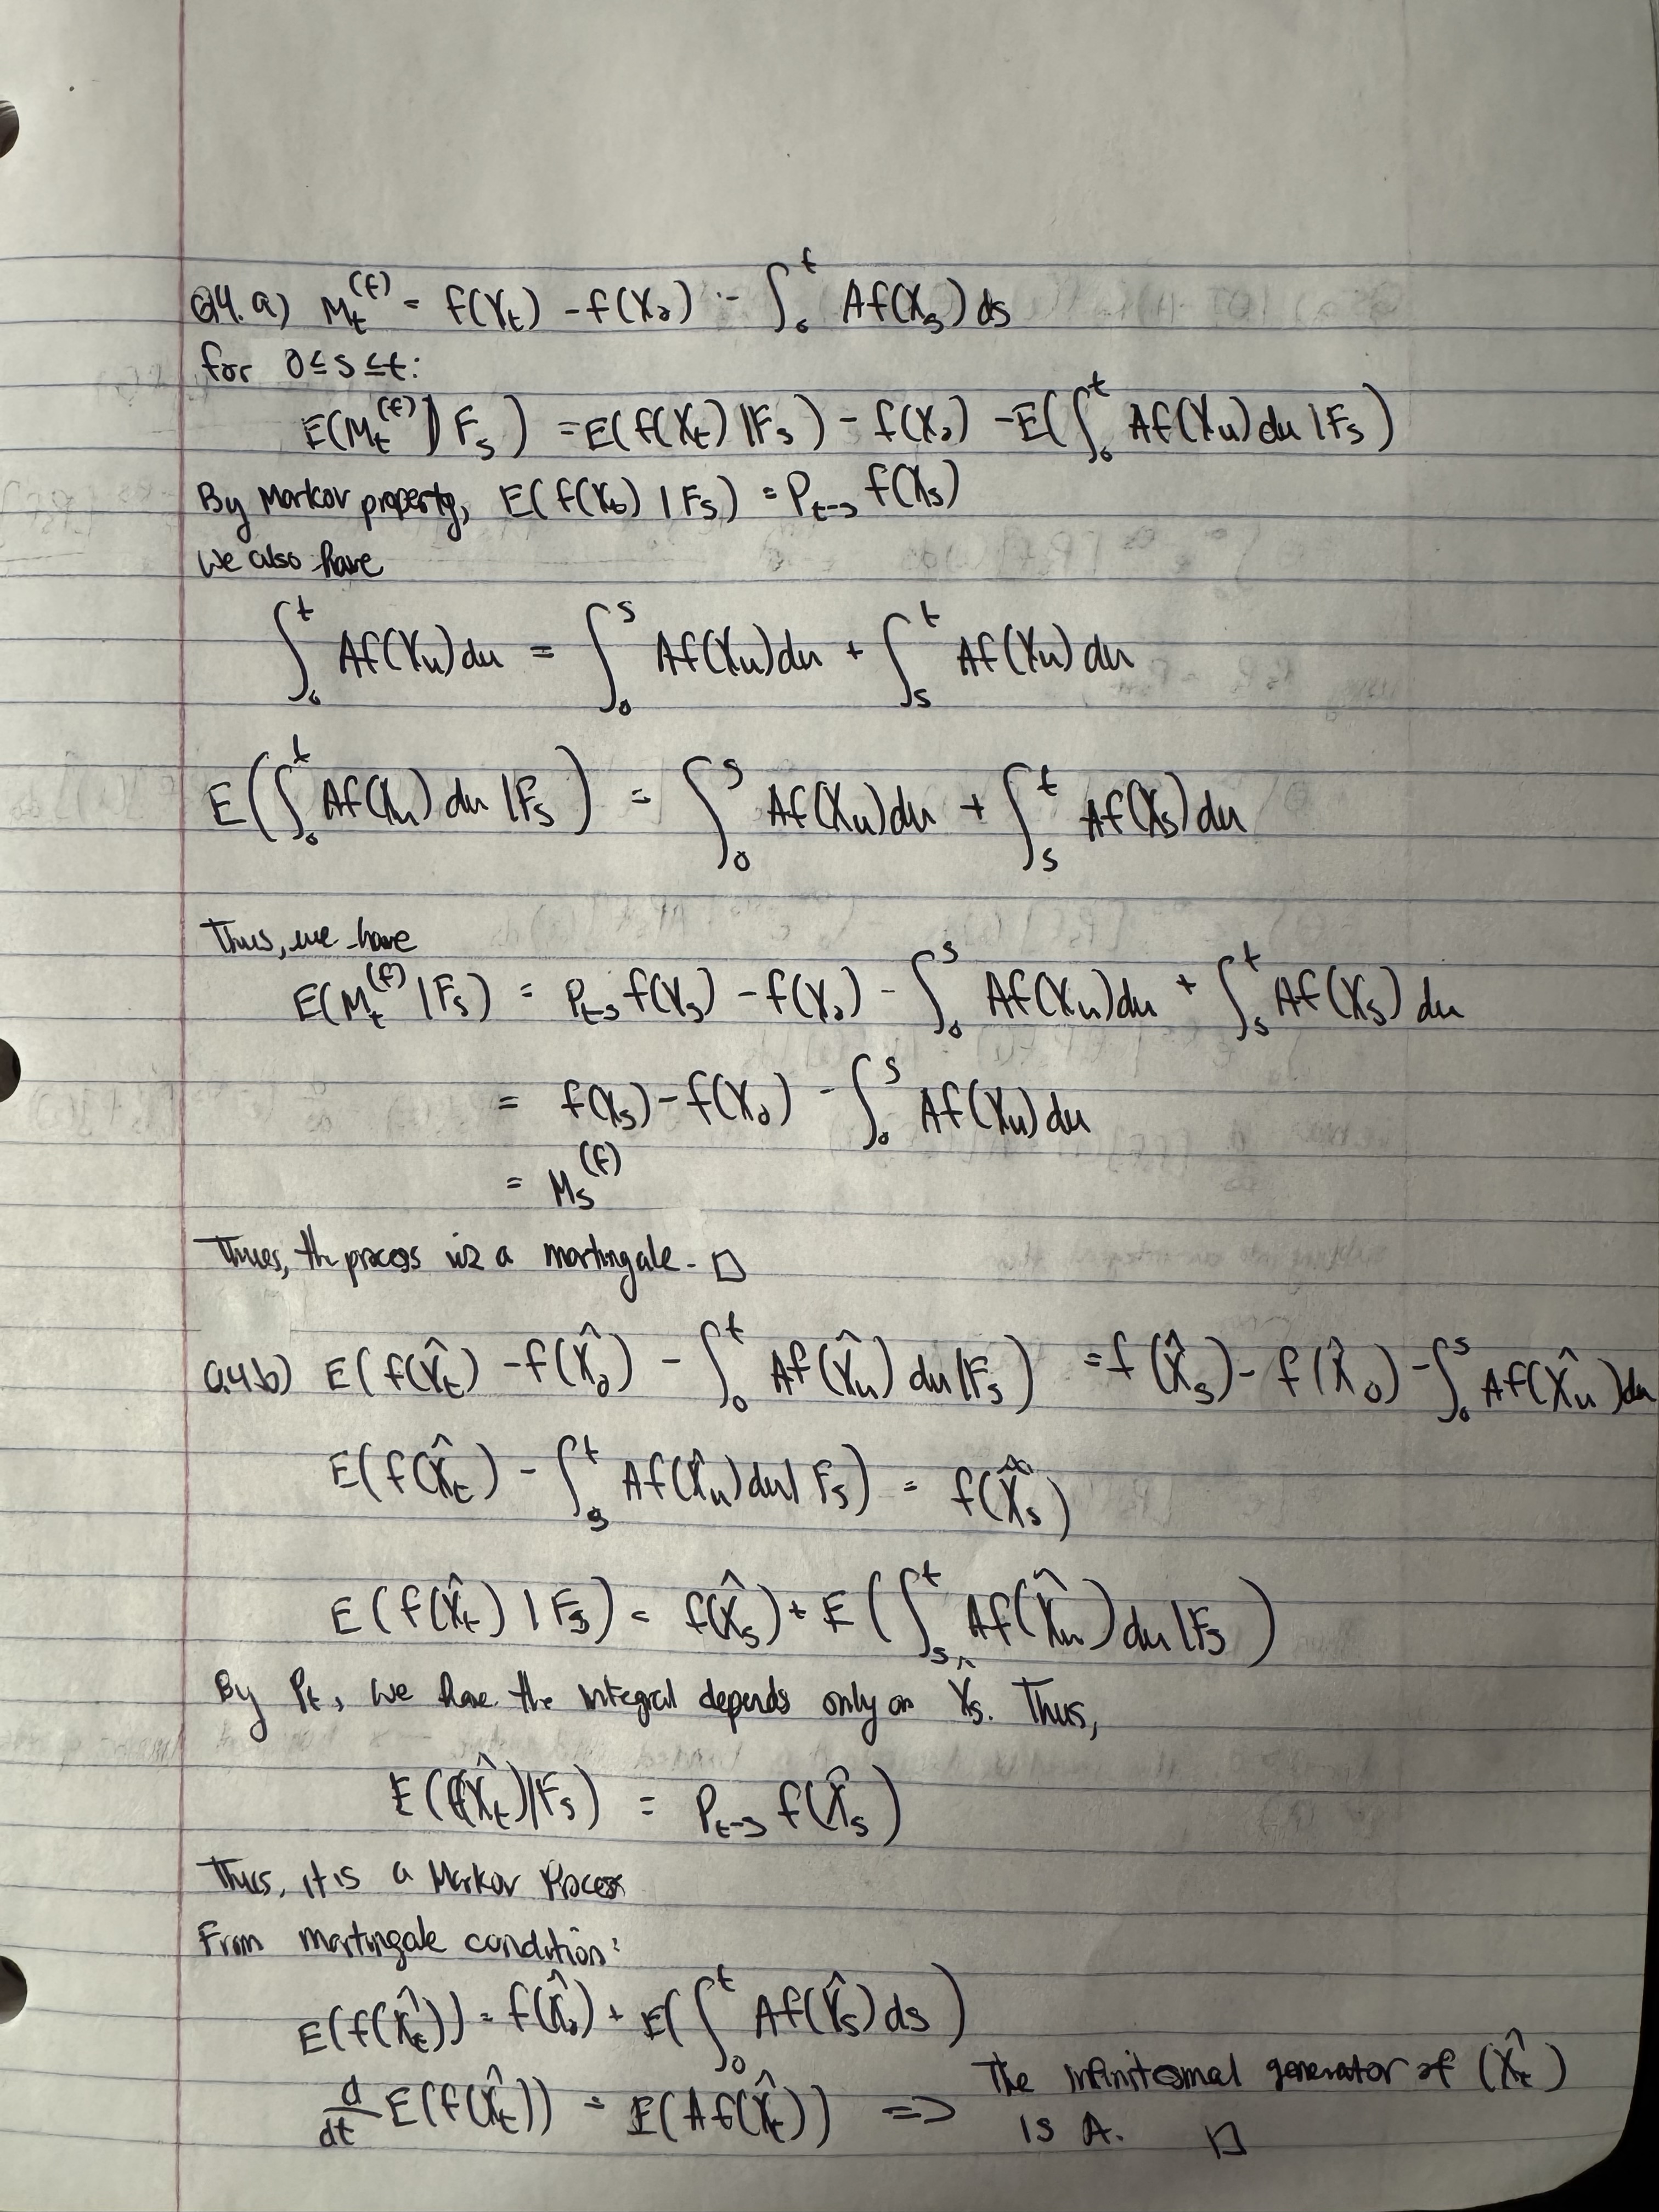 Q4. a) M_t^(f) = f(X_t) - f(X_0) - ∫_0^t Af(X_s) ds
for 0 ≤ s ≤ t:
E(M_t^(f) | F_s) = E(f(X_t) | F_s) - f(X_0) - E(∫_0^t Af(X_u) du | F_s)
By Markov property, E(f(X_t) | F_s) = P_{t-s} f(X_s)
we also have
∫_0^t Af(X_u) du = ∫_0^s Af(X_u) du + ∫_s^t Af(X_u) du
E(∫_0^t Af(X_u) du | F_s) = ∫_0^s Af(X_u) du + ∫_s^t Af(X_s) du
Thus, we have
E(M_t^(f) | F_s) = P_{t-s} f(X_s) - f(X_0) - ∫_0^s Af(X_u) du + ∫_s^t Af(X_s) du
= f(X_s) - f(X_0) - ∫_0^s Af(X_u) du
= M_s^(f)
Thus, th process is a martingale. □
Q4.b) E(f(X̂_t) - f(X̂_0) - ∫_0^t Af(X̂_u) du | F_s) = f(X̂_s) - f(X̂_0) - ∫_0^s Af(X̂_u) du
E(f(X̂_t) - ∫_s^t Af(X̂_u) du | F_s) = f(X̂_s)
E(f(X̂_t) | F_s) = f(X̂_s) + E(∫_s^t Af(X̂_u) du | F_s)
By P_t, we have the integral depends only on X̂_s. Thus,
E(f(X̂_t) | F_s) = P_{t-s} f(X̂_s)
Thus, it is a Markov Process
From martingale condition:
E(f(X̂_t)) = f(X̂_0) + E(∫_0^t Af(X̂_s) ds)
d/dt E(f(X̂_t)) = E(Af(X̂_t)) => The infinitesmal generator of (X̂_t)
is A. □